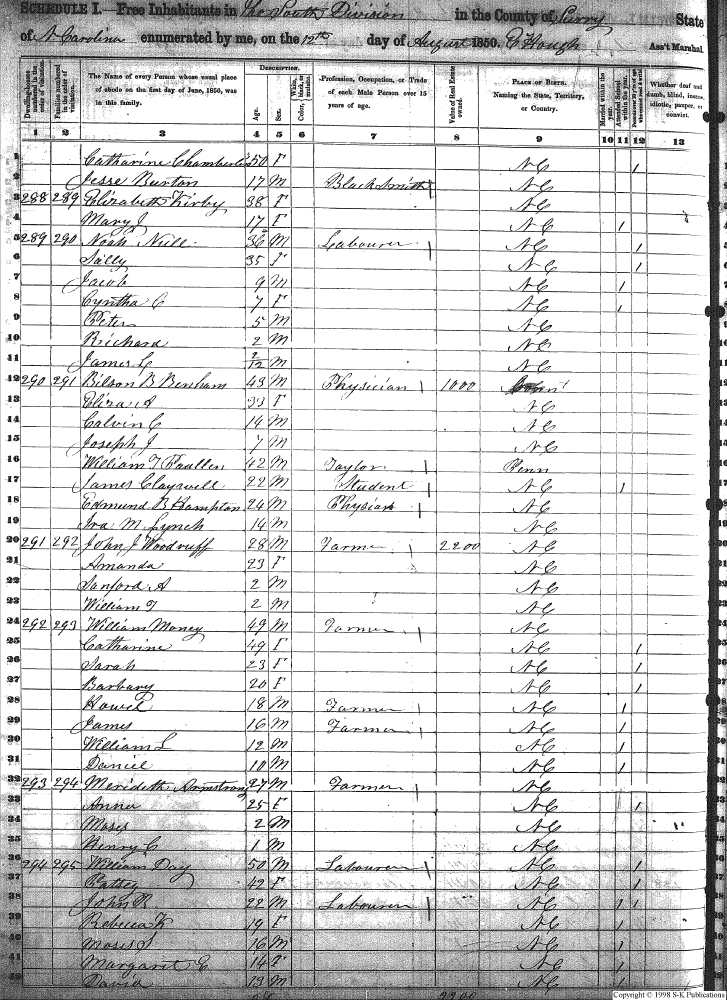 SCHEDULE I.—Free Inhabitants in The South Division in the County of Surry State
of N Carolina enumerated by me, on the 12th day of August 1850. E Hough Ass't Marshal.
Dwelling-houses numbered in the order of visitation.
Families numbered in the order of visitation.
The Name of every Person whose usual place of abode on the first day of June, 1850, was in this family.
DESCRIPTION.
Age.
Sex.
Color, White, black, or mulatto.
Profession, Occupation, or Trade of each Male Person over 15 years of age.
Value of Real Estate owned.
PLACE OF BIRTH. Naming the State, Territory, or Country.
Married within the year.
Attended School within the year.
Persons over 20 y'rs of age who cannot read & write.
Whether deaf and dumb, blind, insane, idiotic, pauper, or convict.
1 2 3 4 5 6 7 8 9 10 11 12 13
1 Catharine Chamberlin 50 F NC /
2 Jesse Burton 17 M Black Smith NC
3 288 289 Elizabeth Kirby 38 F NC
4 Mary J 17 F NC /
5 289 290 Noah Null 36 M Labourer NC /
6 Sally 35 F NC /
7 Jacob 9 M NC /
8 Cyntha C 7 F NC /
9 Peter 5 M NC
10 Richard 2 M NC
11 James L 2/12 M NC
12 290 291 Bilson B Benham 43 M Physician 1000 Conn
13 Eliza A 33 F NC
14 Calvin C 14 M NC
15 Joseph J 7 M NC
16 William T 42 M Taylor Penn
17 James Claywell 22 M Student NC /
18 Edmund B Hampton 24 M Physian NC
19 Ira M Lynch 14 M NC
20 291 292 John J Woodruff 28 M Farmer 2200 NC
21 Amanda 23 F NC
22 Sanford A 2 M NC
23 William T 2 M NC
24 292 293 William Money 49 M Farmer NC
25 Catharine 49 F NC /
26 Sarah 23 F NC /
27 Barbary 20 F NC /
28 Howel 18 M Farmer NC /
29 James 16 M Farmer NC /
30 William L 12 M NC /
31 Daniel 10 M NC /
32 293 294 Merideth Armstrong 27 M Farmer NC
33 Anna 25 F NC /
34 Moses 2 M NC "
35 Henry C 1 M NC
36 294 295 William Day 50 M Labourer NC /
37 Pattey 42 F NC /
38 John R 22 M Labourer NC / /
39 Rebecca K 19 F NC /
40 Moses S 16 M NC /
41 Margaret E 14 F NC /
42 David 13 M NC /
2200
Copyright © 1998 S-K Publications